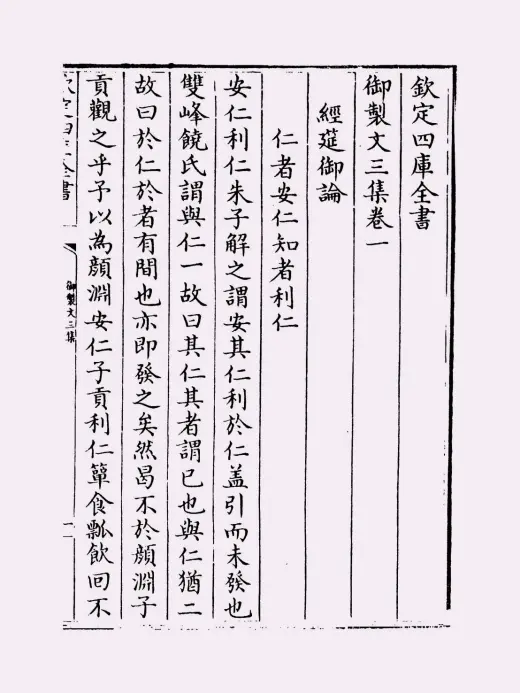 欽定四庫全書
御製文三集卷一
經筵御論
仁者安仁知者利仁
安仁利仁朱子解之謂安其仁利於仁盖引而未發也
雙峰饒氏謂與仁一故曰其仁其者謂已也與仁猶二
故曰於仁於者有間也亦即發之矣然曷不於顔淵子
貢觀之乎予以為顔淵安仁子貢利仁簞食瓢飲回不
欽定四庫全書
御製文三集